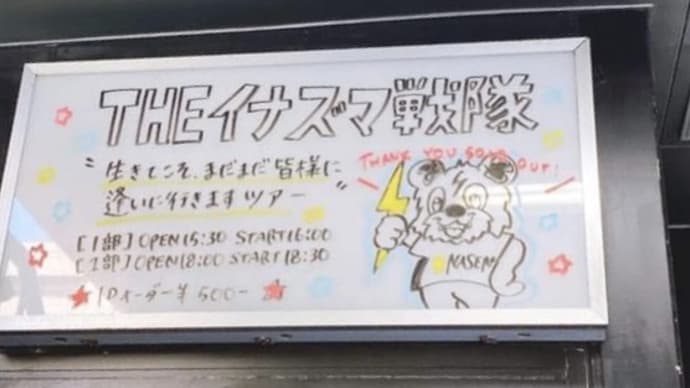 THEイナズマ戦隊
"生きてこそ、まだまだ皆様に
逢いに行きますツアー"
THANK YOU SOLD OUT!
[1部] OPEN15:30 START16:00
[2部] OPEN18:00 START18:30
★1Dオーダー¥500-★
NASEM